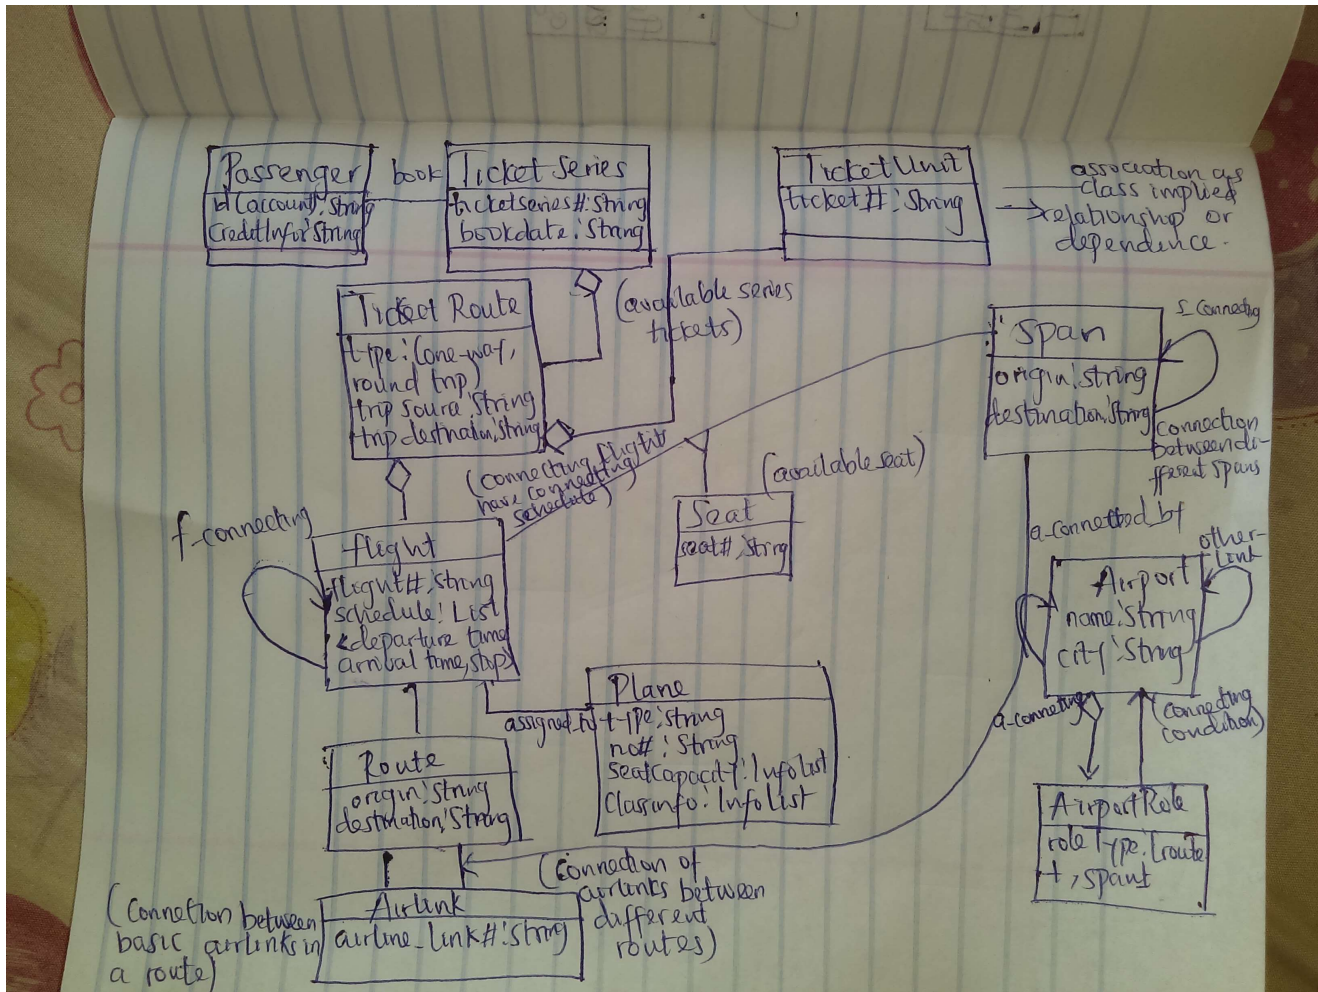 Passenger
id(account): String
CreditInfo: String
book
Ticket Series
ticketseries#: String
bookdate: String
Ticket Unit
ticket#: String
association as
class implied
relationship or
dependence.
Ticket Route
type: (one-way,
round trip)
trip source: String
trip destination: String
(available series
tickets)
Span
origin: String
destination: String
s_connecting
connection
between di-
fferent spans
(connecting flight
have connecting
schedule)
(available seat)
Seat
seat#: String
f-connecting
flight
flight#: String
schedule: List
<departure time
arrival time, stop>
a-connected_by
other-
link
Airport
name: String
city: String
a-connecting
(connecting
condition)
assigned_to
Plane
type: String
no#: String
seatCapacity: InfoList
Classinfo: InfoList
Route
origin: String
destination: String
AirportRole
roleType: (route
+, span+
(Connection of
airlinks between
different
routes)
(Connection between
basic airlinks in
a route)
Airlink
airline_link#: String